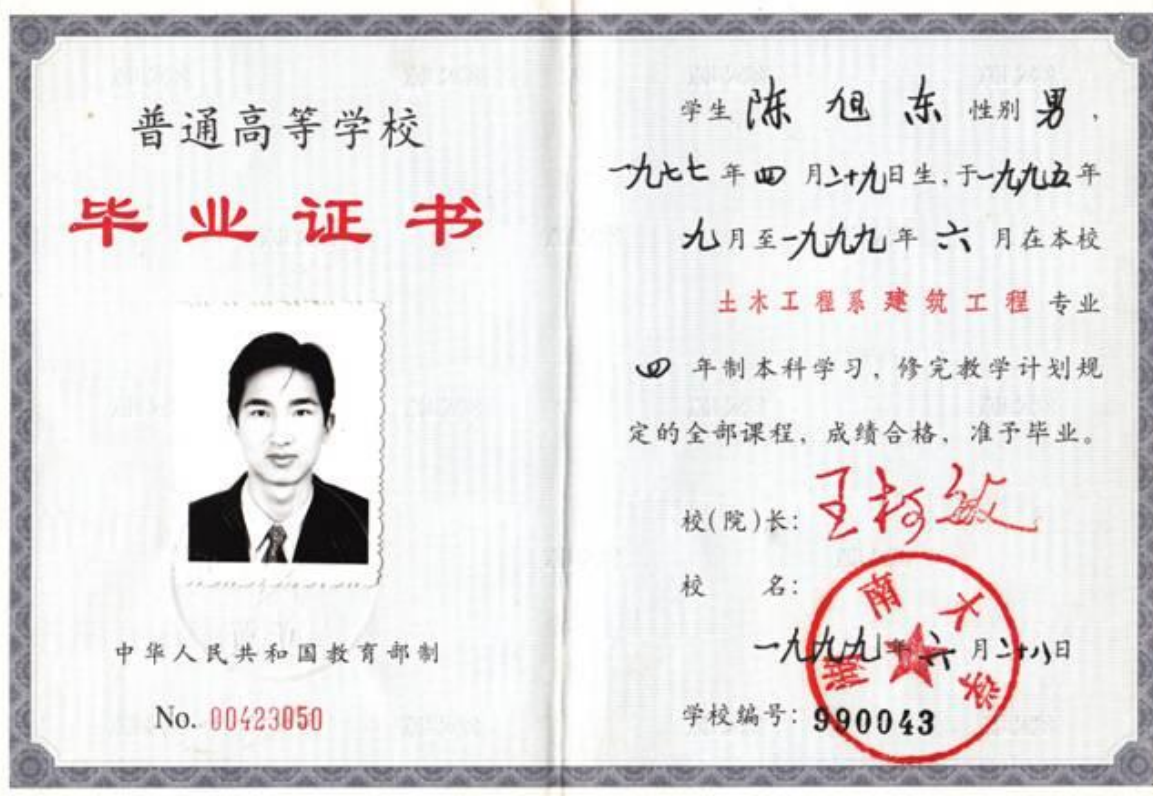 普通高等学校
毕业证书
中华人民共和国教育部制
No. 00423050
学生 陈旭东 性别 男，
一九七七年四月二十九日生，于一九九五年
九月至一九九九年六月在本校
土木工程系建筑工程专业
四年制本科学习，修完教学计划规
定的全部课程，成绩合格，准予毕业。
校(院)长：王柯敏
校 名：
湖南大学
一九九九年六月二十八日
学校编号：990043